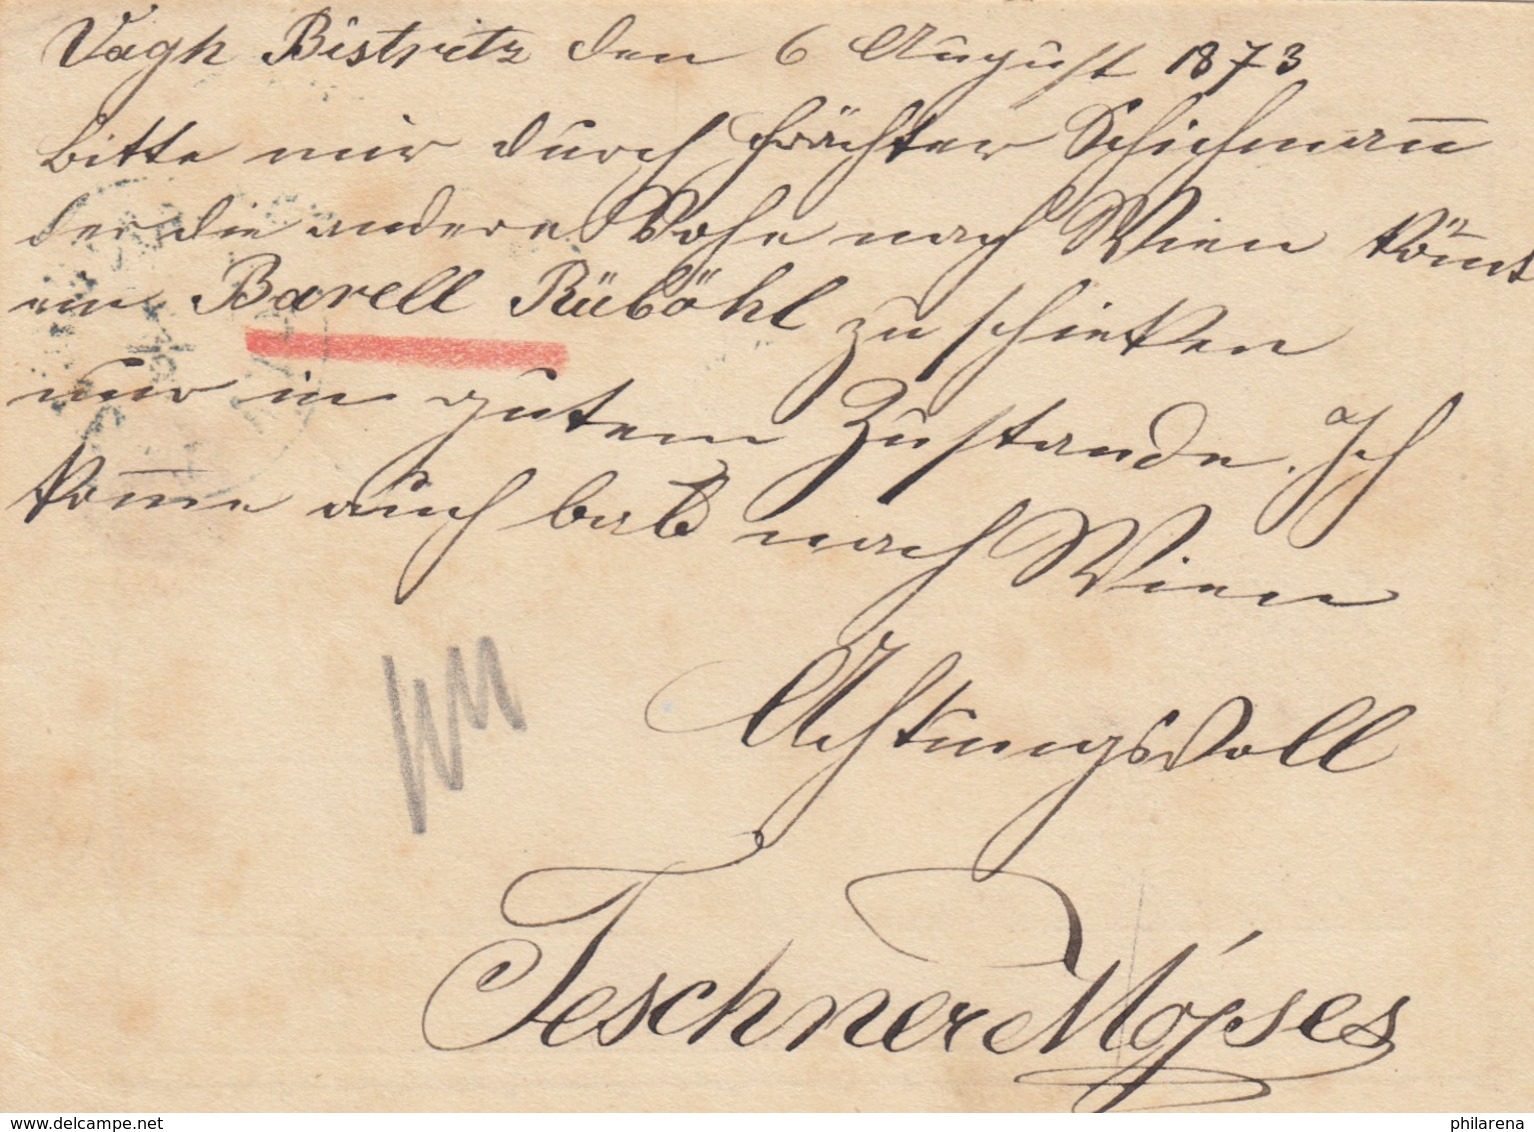 Vagh Bistritz den 6 August 1873
bitte mir durch Frächter Schichmañ
der die andere Wohe nach Wien kom̄t
ein Barell Rüböhl zu schicken
nur in gutem Zustande. Ich
kom̄e auch bald nach Wien
Achtungsvoll
Teschner Mojses
delcampe.net
philarena